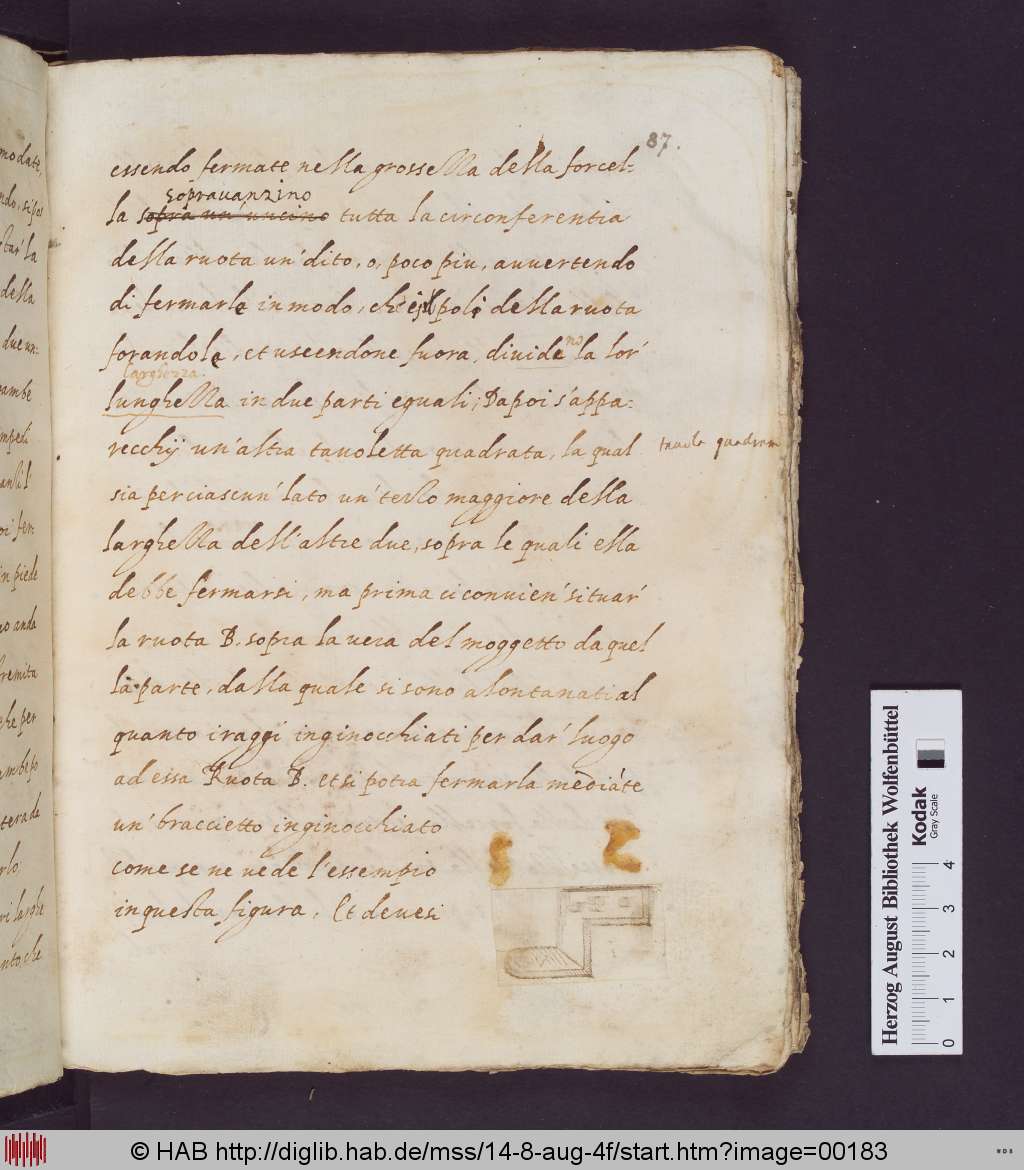 87.
essendo fermate nella grossezza della forcel-
sopravanzino
la sopra un' uncino tutta la circonferentia
della ruota un' dito, o, poco piu, avvertendo
di fermarle in modo, che i poli della ruota
forandole, et uscendone fuora, divideno la lor'
larghezza.
lunghezza in due parti eguali; Dapoi s'appa-
recchij un'altra tavoletta quadrata, la qual
tavola quadrata
sia per ciascun' lato un' terzo maggiore della
larghezza dell'altre due, sopra le quali ella
debbe fermarsi, ma prima ci convien' situar'
la ruota B. sopra la vera del moggetto da quel
la parte, dalla quale si sono alontanati al
quanto i raggi inginocchiati per dar' luogo
ad essa Ruota B. et si potra fermarla mediãte
un' braccietto inginocchiato
come se ne vede l'essempio
in questa figura. Et devesi
modate,
della
due un-
ambe
fer-
in piede
anda
tremita
che per
ambe po
tera da
rlo,
ri larghe
nto, che
Herzog August Bibliothek Wolfenbüttel
Kodak
Gray Scale
0 1 2 3 4
© HAB http://diglib.hab.de/mss/14-8-aug-4f/start.htm?image=00183